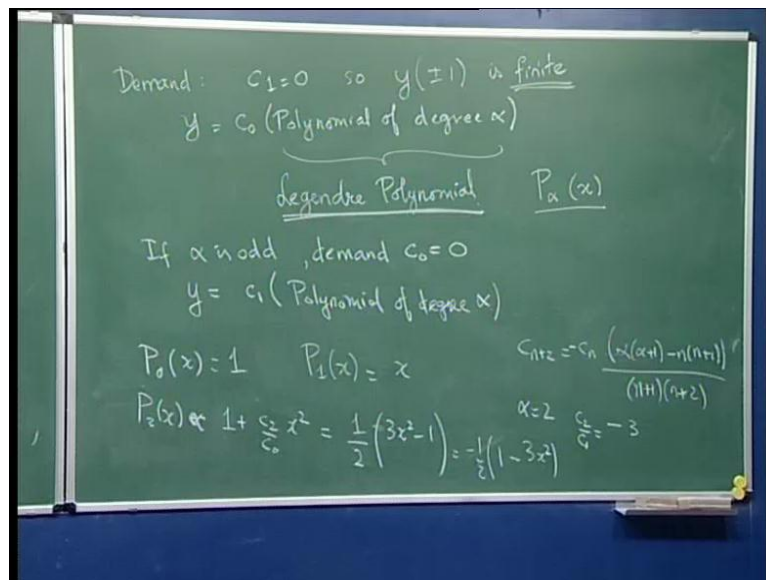 Demand: C₁=0 so y(±1) is finite
y = C₀ (Polynomial of degree α)
Legendre Polynomial Pα(x)
If α is odd, demand C₀=0
y = C₁ (Polynomial of degree α)
P₀(x)=1 P₁(x)= x
Cₙ₊₂=-Cₙ (α(α+1)-n(n+1))/(n+1)(n+2)
P₂(x) ∝ 1+ C₂/C₀ x² = 1/2 (3x²-1) = -1/2 (1-3x²)
α=2 C₂/C₀ = -3